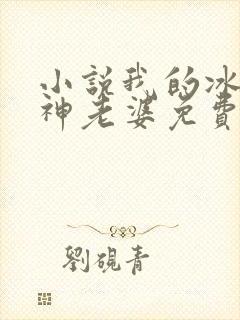 小說我的冰
神老婆免費
劉硯青